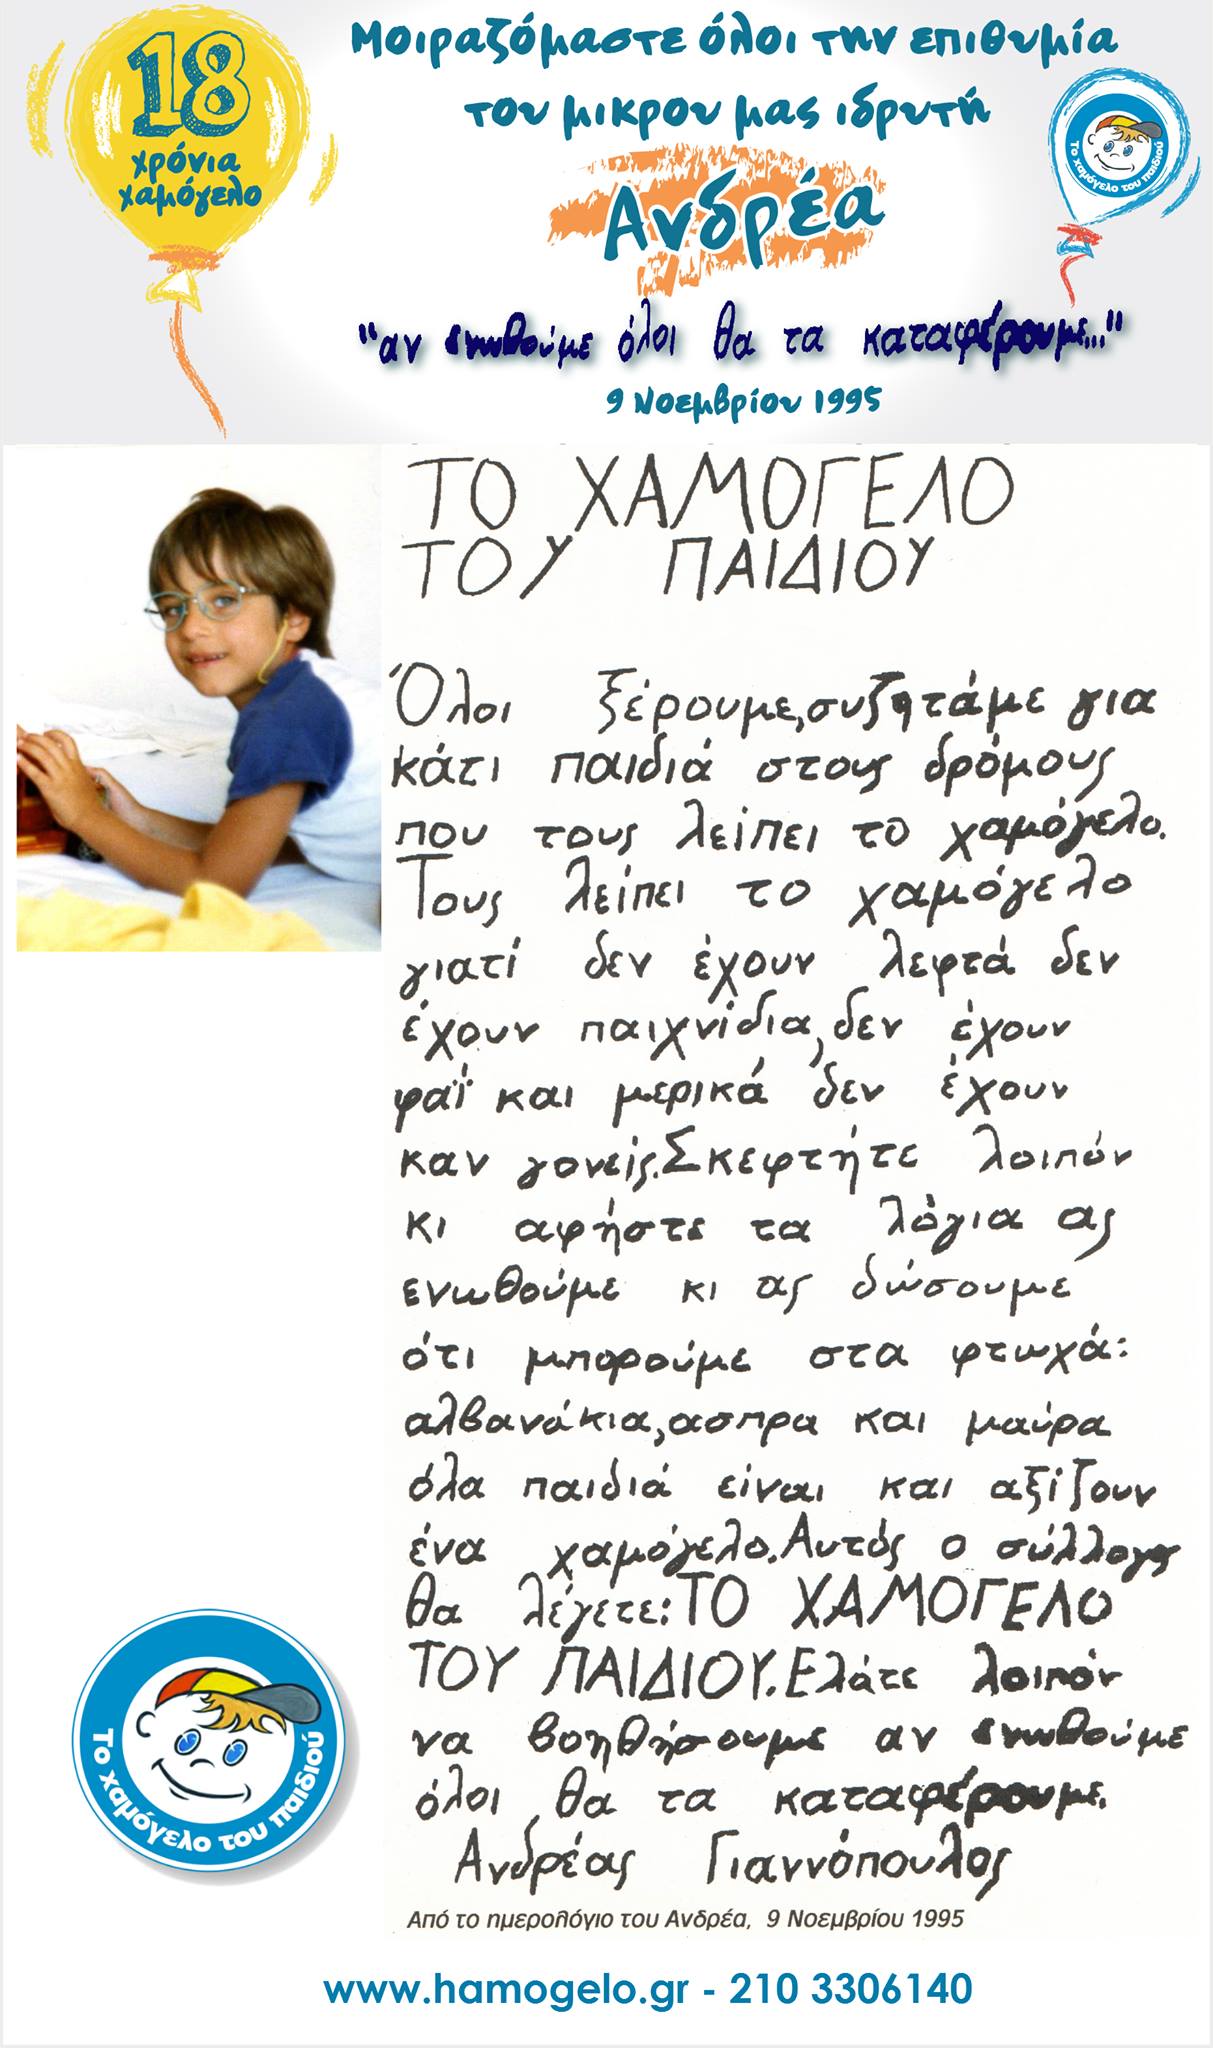 18
χρόνια
χαμόγελο
Μοιραζόμαστε όλοι την επιθυμία
του μικρου μας ιδρυτή
Ανδρέα
Το χαμόγελο του παιδιού
"αν ενωθούμε όλοι θα τα καταφέρουμε..."
9 Νοεμβρίου 1995
ΤΟ ΧΑΜΟΓΕΛΟ
ΤΟΥ ΠΑΙΔΙΟΥ
Όλοι ξέρουμε,συζητάμε για
κάτι παιδιά στους δρόμους
που τους λείπει το χαμόγελο.
Τους λείπει το χαμόγελο
γιατί δεν έχουν λεφτά δεν
έχουν παιχνίδια,δεν έχουν
φαΐ και μερικά δεν έχουν
καν γονείς.Σκεφτήτε λοιπόν
κι αφήστε τα λόγια ας
ενωθούμε κι ας δώσουμε
ότι μπορούμε στα φτωχά:
αλβανάκια,ασπρα και μαύρα
όλα παιδιά είναι και αξίζουν
ένα χαμόγελο.Αυτός ο σύλλογος
θα λέγετε:ΤΟ ΧΑΜΟΓΕΛΟ
ΤΟΥ ΠΑΙΔΙΟΥ.Ελάτε λοιπόν
να βοηθήσουμε αν ενωθούμε
όλοι θα τα καταφέρουμε.
Ανδρέας Γιαννόπουλος
Από το ημερολόγιο του Ανδρέα, 9 Νοεμβρίου 1995
Το χαμόγελο του παιδιού
www.hamogelo.gr - 210 3306140